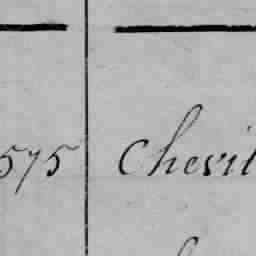 575 Chevil